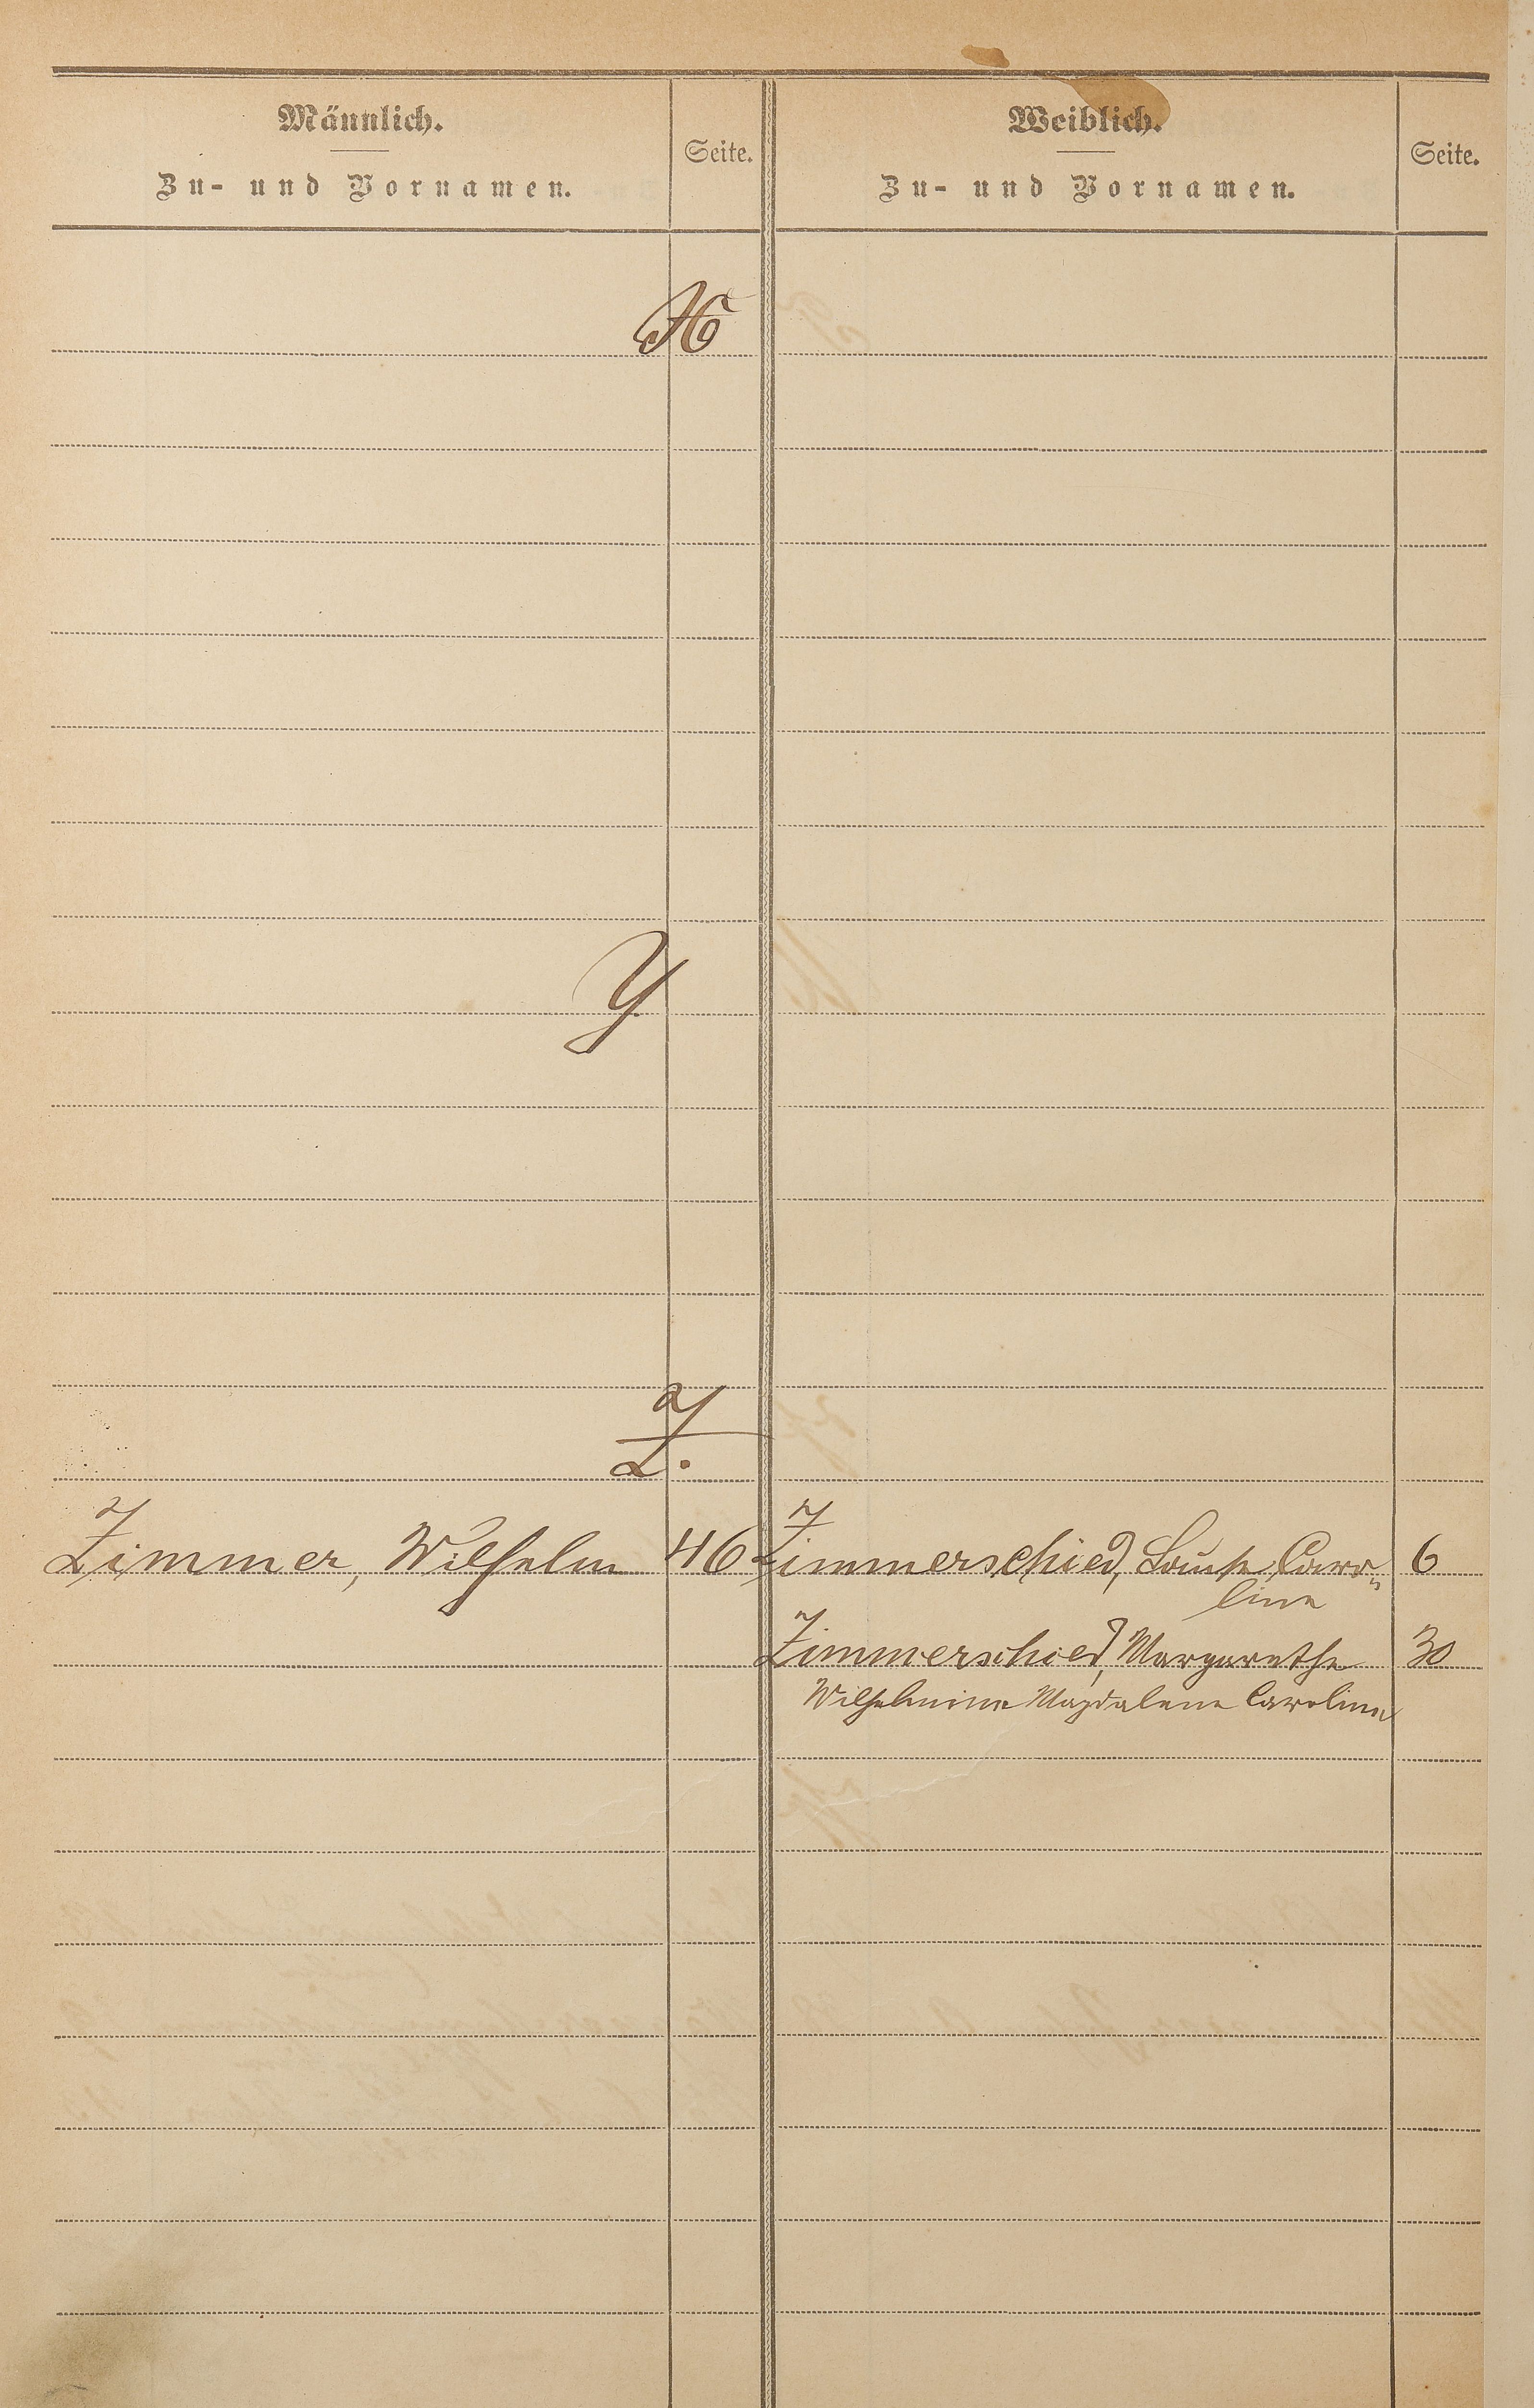 Männlich.
Zu- und Vornamen.
Seite.
Weiblich.
Zu- und Vornamen.
Seite.
X
Y.
Z.
Zimmer, Wilhelm 46
Zimmerschied, Louise Caro⸗ 6
line
Zimmerschied, Margarethe 30
Wilhelmine Magdalene Caroline